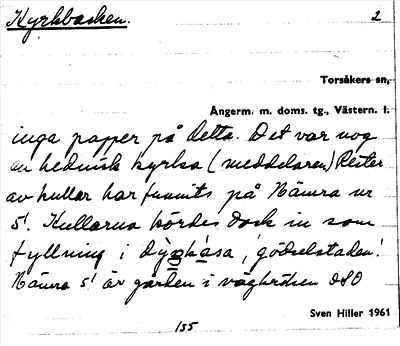 Kyrkbacken. 2
Torsåkers sn,
Ångerm. m. doms. tg., Västern. l.
inga papper på detta. Det var nog
en hednisk kyrka (meddelaren) Rester
av kullar har funnits på Nämra nr
5! Kullarna kördes dock in som
fyllning i dỳnkåsa, 'gödselstaden'.
Nämra 5! är gården i vägkröken OSO
Sven Hiller 1961
155